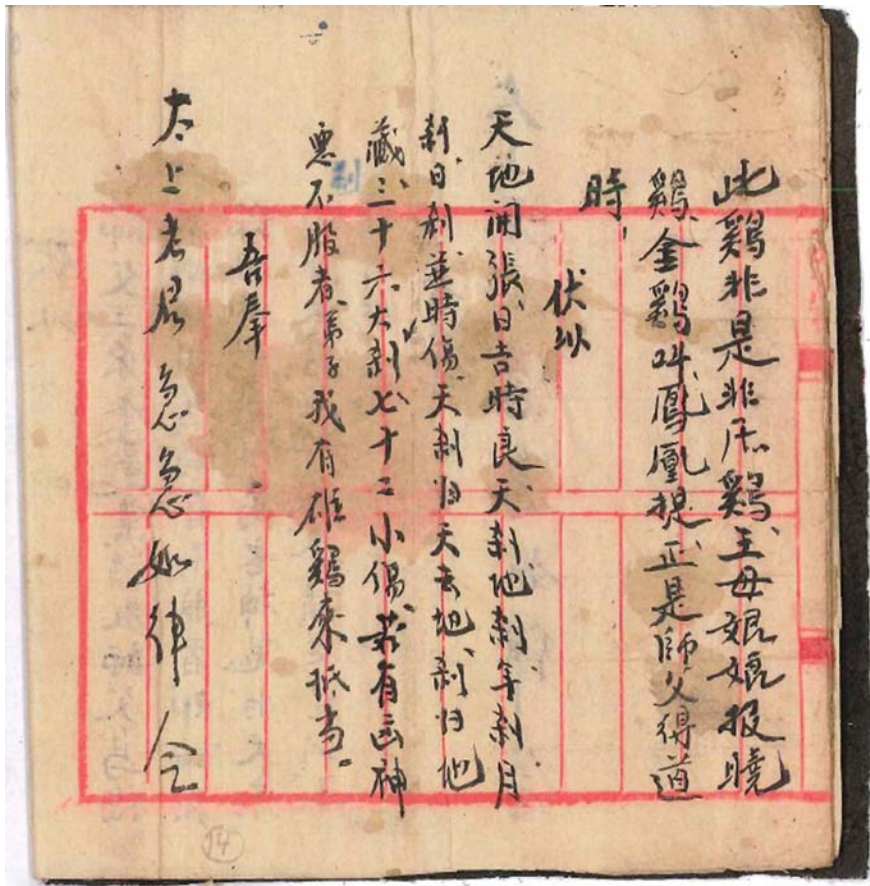 此鷄非是非凡鷄、王母娘娘报曉
鷄、金鷄叫、鳳凰提、正是師父得道
時、
伏以
天地開張、日吉時良、天刹、地刹、年刹、月
刹、日刹、並時傷、天刹归天去、地刹归地
藏、三十六大刹、七十二小傷、若有凶神
惡 不服者、弟子我有雄鷄來抵当。
刹
吾奉
太上老君急急如律令
14